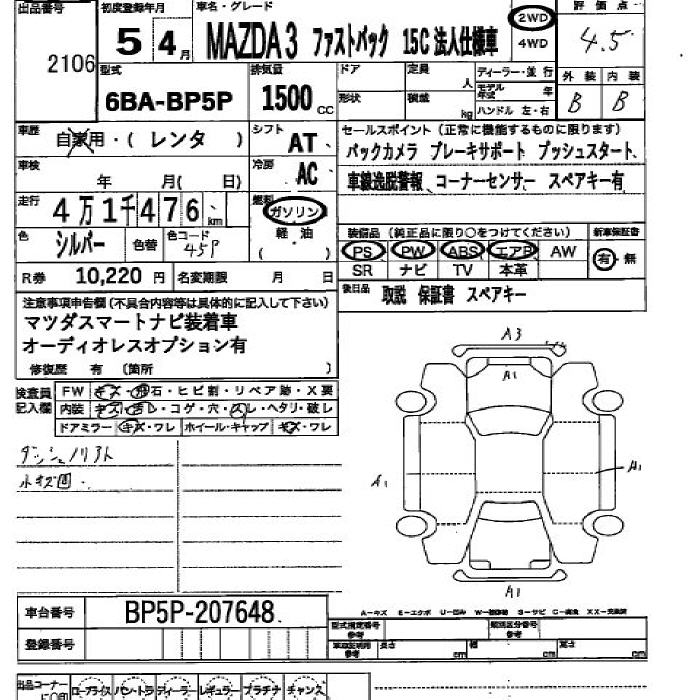 出品番号 初度登録年月 車名・グレード 評価点
2106 5 4月 MAZDA3 ファストバック 15C 法人仕様車 2WD 4WD 4.5
型式 排気量 ドア 定員 人 ディーラー・並行 外装 内装
6BA-BP5P 1500cc 形状 積載 kg モデル年式 年 B B
ハンドル 左・右
車歴 自家用・(レンタ ) シフト AT セールスポイント (正常に機能するものに限ります)
バックカメラ ブレーキサポート プッシュスタート、
車検 年 月( 日) 冷房 AC 車線逸脱警報、コーナーセンサー スペアキー有
走行 4万1千476 km 燃料 ガソリン
軽・油
( )
装備品 (純正品に限り○をつけてください) 新車保証書
色 シルバー 色替 色コード 45P PS PW ABS エアB AW 有・無
SR ナビ TV 本革
R券 10,220円 名変期限 月 日
後日品 取説 保証書 スペアキー
注意事項申告欄 (不具合内容等は具体的に記入して下さい)
マツダスマートナビ装着車
オーディオレスオプション有
修復歴 有 (箇所 )
検査員記入欄 FW キズ・飛石・ヒビ割・リペア跡・X要
内装 キズ・汚レ・コゲ・穴・スレ・ヘタリ・破レ
ドアミラー キズ・ワレ ホイール・キャップ キズ・ワレ
A3
A1
A1
A1
A1
車台番号 BP5P-207648
登録番号
A-キズ E-エクボ U-凹み
型式指定番号 参考 類別区分番号 参考
長さ cm 幅 cm 高さ cm
出品コーナー ロープライス パントラ ディーラー レギュラー プラチナ チャンス